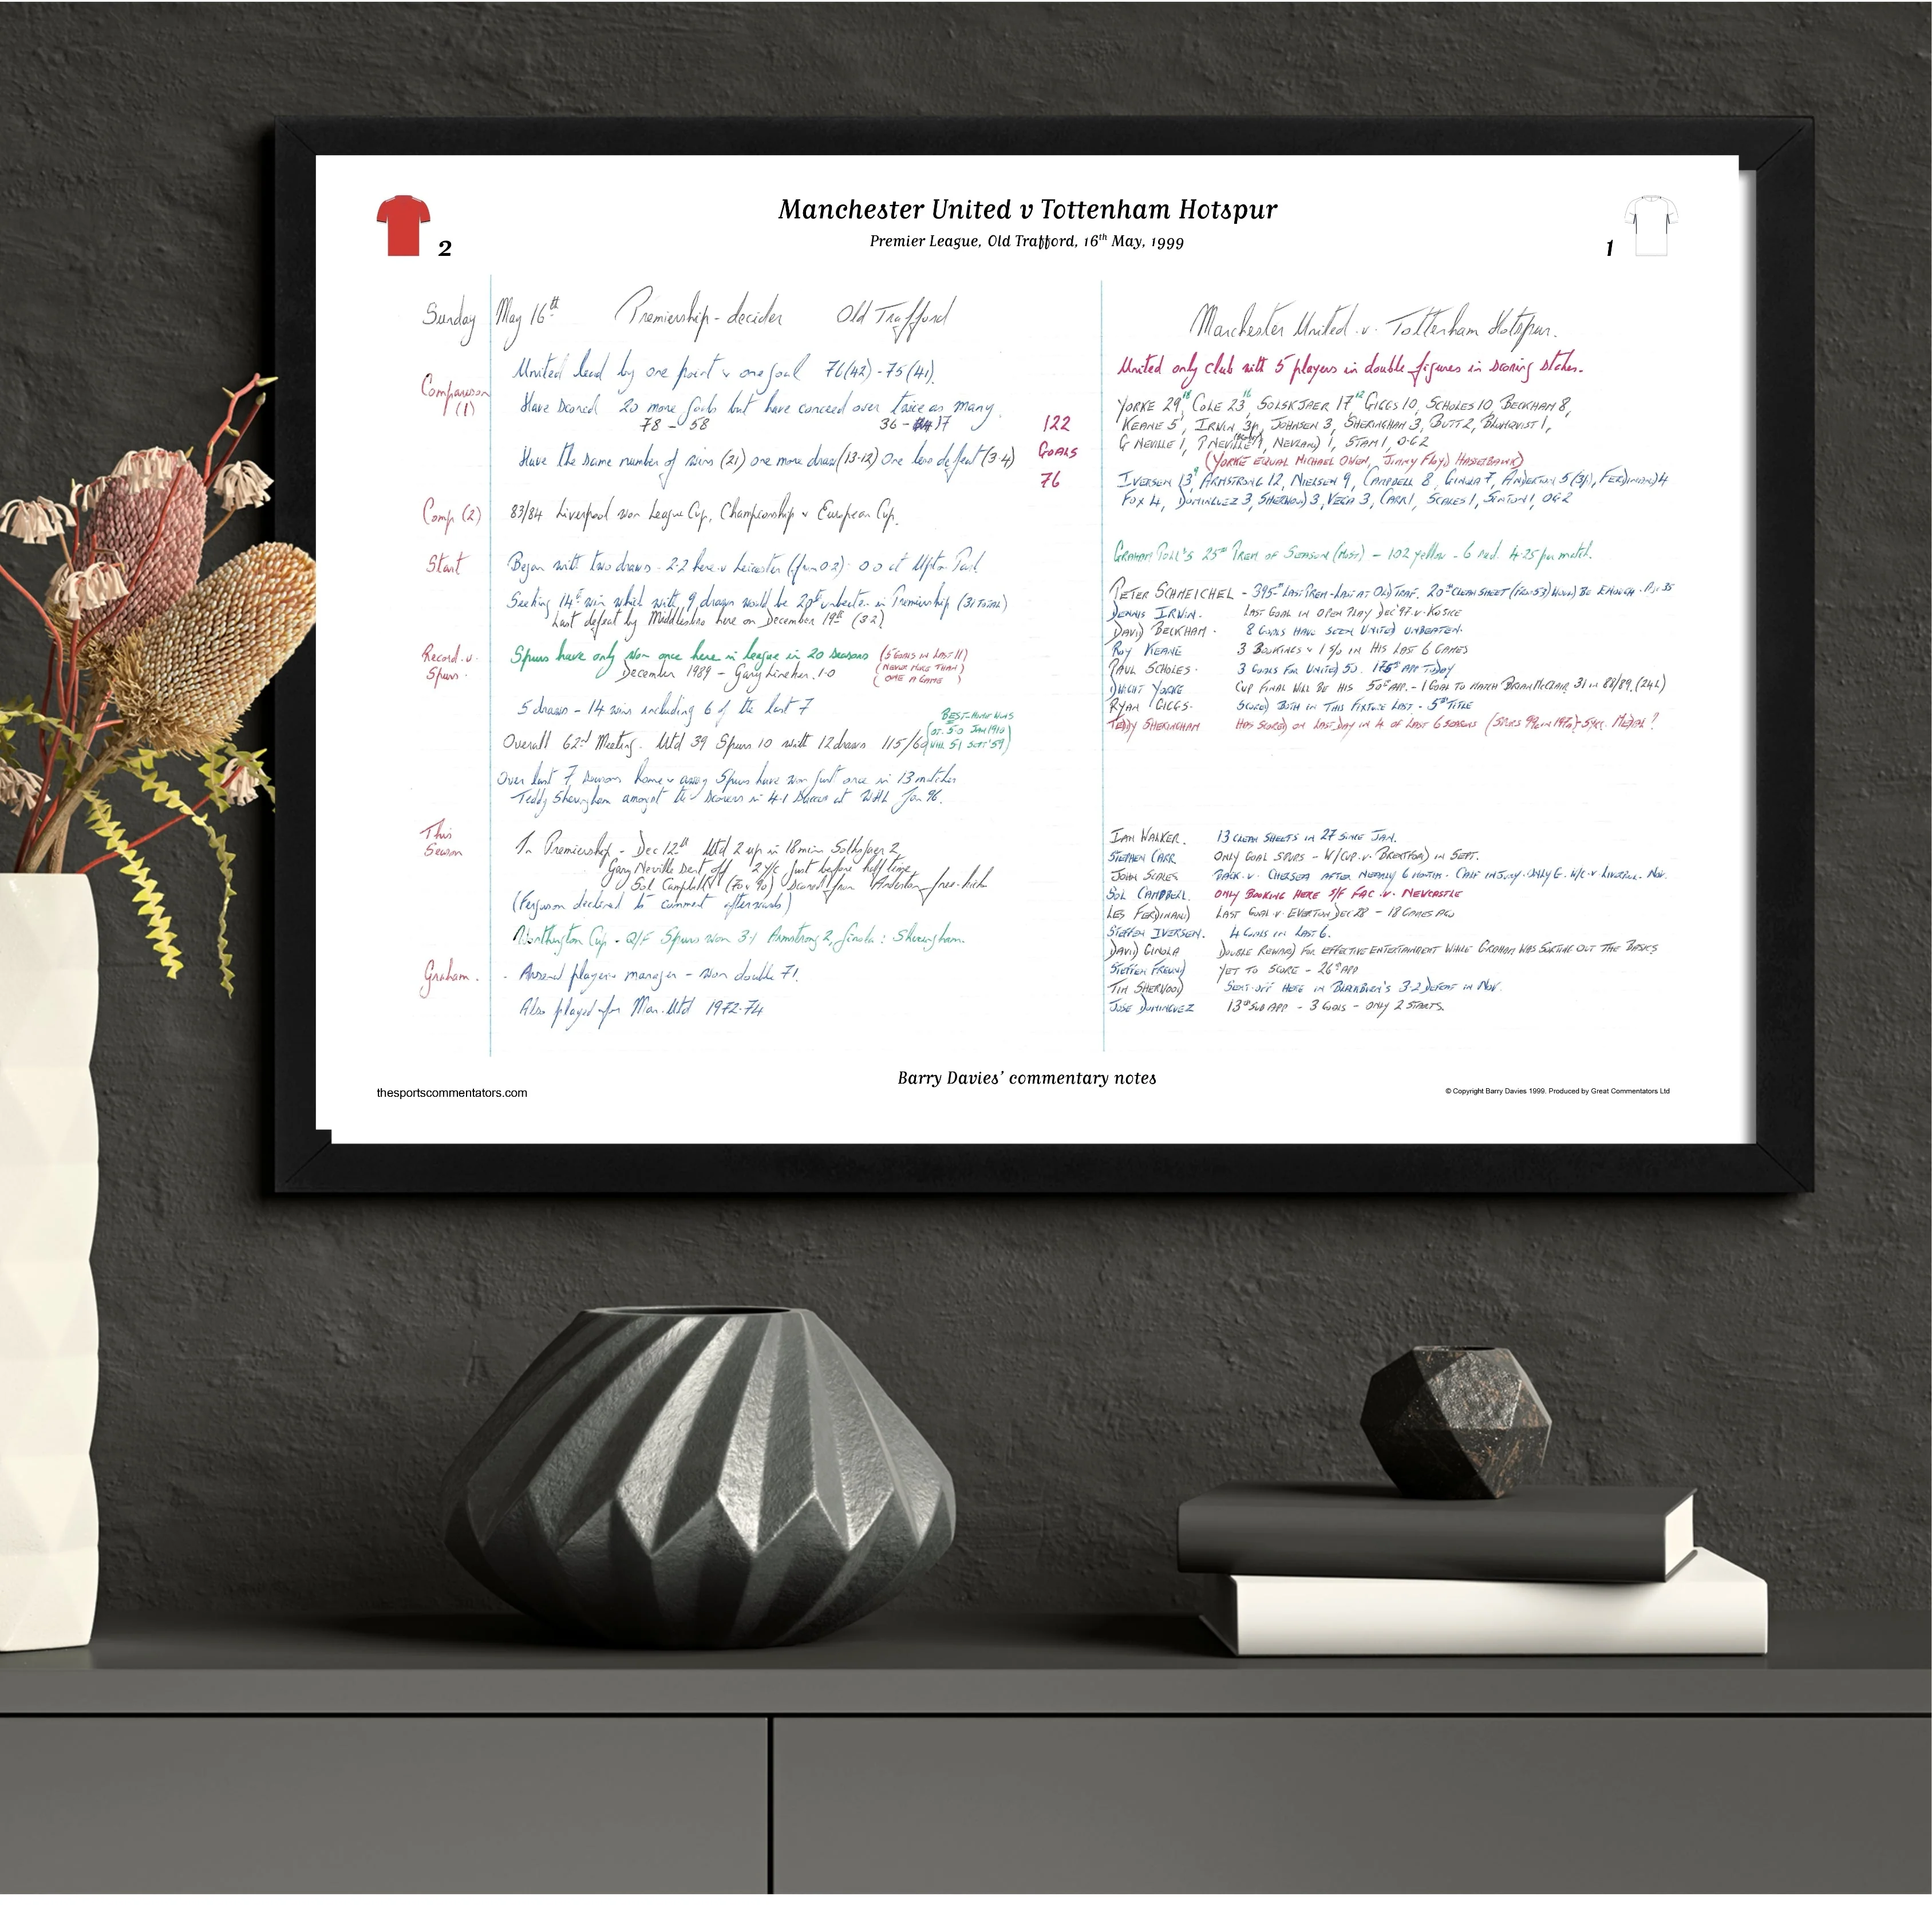 Manchester United v Tottenham Hotspur
Premier League, Old Trafford, 16th May, 1999
2
1
Sunday May 16th Premiership-decider Old Trafford
Comparison (1)
United lead by one point & one goal 76(42) - 75(41).
Have scored 20 more goals but have conceded over twice as many.
78 - 58 36 - 17
Have the same number of wins (21) one more draw (13-12) One less defeat (3-4)
122
GOALS
76
Comp (2) 83/84 Liverpool won League Cup, Championship & European Cup.
Start Began with two draws - 2-2 here v Leicester (from 0-2) 0-0 at Upton Park.
Seeking 14th win which with 9 draws would be 20th unbeaten in Premiership (31 total)
Last defeat by Middlesbro here on December 19th (3-2)
Record v. Spurs. Spurs have only won once here in league in 20 seasons (5 GOALS IN LAST 11)
(NEVER MORE THAN)
(ONE A GAME)
December 1989 - Gary Lineker. 1-0
5 draws - 14 wins including 6 of the last 7
BEST HOME WINS
OT. 5-0 JAN 1910
WHL 5-1 SEPT '59
Overall 62nd Meeting. Utd 39 Spurs 10 with 12 draws 115/60
Over last 7 seasons home & away Spurs have won just once in 13 matches
Teddy Sheringham amongst the scorers in 4-1 success at WHL Jan 96.
This Season In Premiership - Dec 12th Utd 2 up in 18 min Solksjaer 2
Gary Neville sent off 2 y/c just before half time
Sol Campbell (70 & 90) scored from Anderton free-kick
(Ferguson declined to comment afterwards)
Worthington Cup - Q/F Spurs won 3-1 Armstrong 2, Ginola : Sheringham.
Graham. - Arsenal player & manager - won double 71.
Also played for Man. Utd 1972-74
Manchester United .v. Tottenham Hotspur.
United only club with 5 players in double figures in scoring stakes.
YORKE 29 18, COLE 23 16, SOLSKJAER 17 12, GIGGS 10, SCHOLES 10, BECKHAM 8,
KEANE 5, IRWIN 3p, JOHNSEN 3, SHERINGHAM 3, BUTT 2, BLOMQVIST 1,
G NEVILLE 1, P NEVILLE 1, NEVLAND 1, STAM 1, O.G 2
(YORKE EQUAL MICHAEL OWEN, JIMMY FLOYD HASSELBAINK)
IVERSEN 13 9, ARMSTRONG 12, NIELSEN 9, CAMPBELL 8, GINOLA 7, ANDERTON 5 (3p), FERDINAND 4
FOX 4, DOMINGUEZ 3, SHERWOOD 3, VEGA 3, CARR 1, SCALES 1, SINTON 1, OG 2
GRAHAM POLL'S 25th PREM OF SEASON (MOST) - 102 yellow - 6 red. 4.25 per match.
PETER SCHMEICHEL - 395th LAST PREM - LAST AT OLD TRAF. 20th CLEAN SHEET WOULD BE ENOUGH.
DENNIS IRWIN. LAST GOAL IN OPEN PLAY DEC '97 .v. KOSICE
DAVID BECKHAM. 8 GOALS HAVE SEEN UNITED UNBEATEN.
ROY KEANE 3 BOOKINGS & 1 S/O IN HIS LAST 6 GAMES
PAUL SCHOLES. 3 GOALS FOR UNITED 50. 175th APP TODAY
DWIGHT YORKE CUP FINAL WILL BE HIS 50th APP. - 1 GOAL TO MATCH BRIAN McCLAIR 31 IN 88/89. (24L)
RYAN GIGGS. SCORED BOTH IN THIS FIXTURE LAST. - 5th TITLE
TEDDY SHERINGHAM HAS SCORED ON LAST DAY IN 4 OF LAST 6 SEASONS MEDAL ?
IAN WALKER. 13 CLEAN SHEETS IN 27 SINCE JAN.
STEPHEN CARR ONLY GOAL SPURS - W/CUP .v. BRENTFORD IN SEPT.
JOHN SCALES BACK .v. CHELSEA AFTER NEARLY 6 MONTHS. CALF INJURY. ONLY G. W/C v LIVERPOOL. NOV.
SOL CAMPBELL. ONLY BOOKING HERE S/F FAC .v. NEWCASTLE
LES FERDINAND LAST GOAL .v. EVERTON DEC 28 - 18 GAMES AGO
STEFFEN IVERSEN. 4 GOALS IN LAST 6.
DAVID GINOLA DOUBLE REWARD FOR EFFECTIVE ENTERTAINMENT WHILE GRAHAM WAS SORTING OUT THE BASICS
STEFFEN FREUND YET TO SCORE - 26th APP
TIM SHERWOOD SENT-OFF HERE IN BLACKBURN'S 3-2 DEFEAT IN NOV.
JOSE DOMINGUEZ 13th SUB APP - 3 GOALS - ONLY 2 STARTS.
Barry Davies' commentary notes
thesportscommentators.com
© Copyright Barry Davies 1999. Produced by Great Commentators Ltd